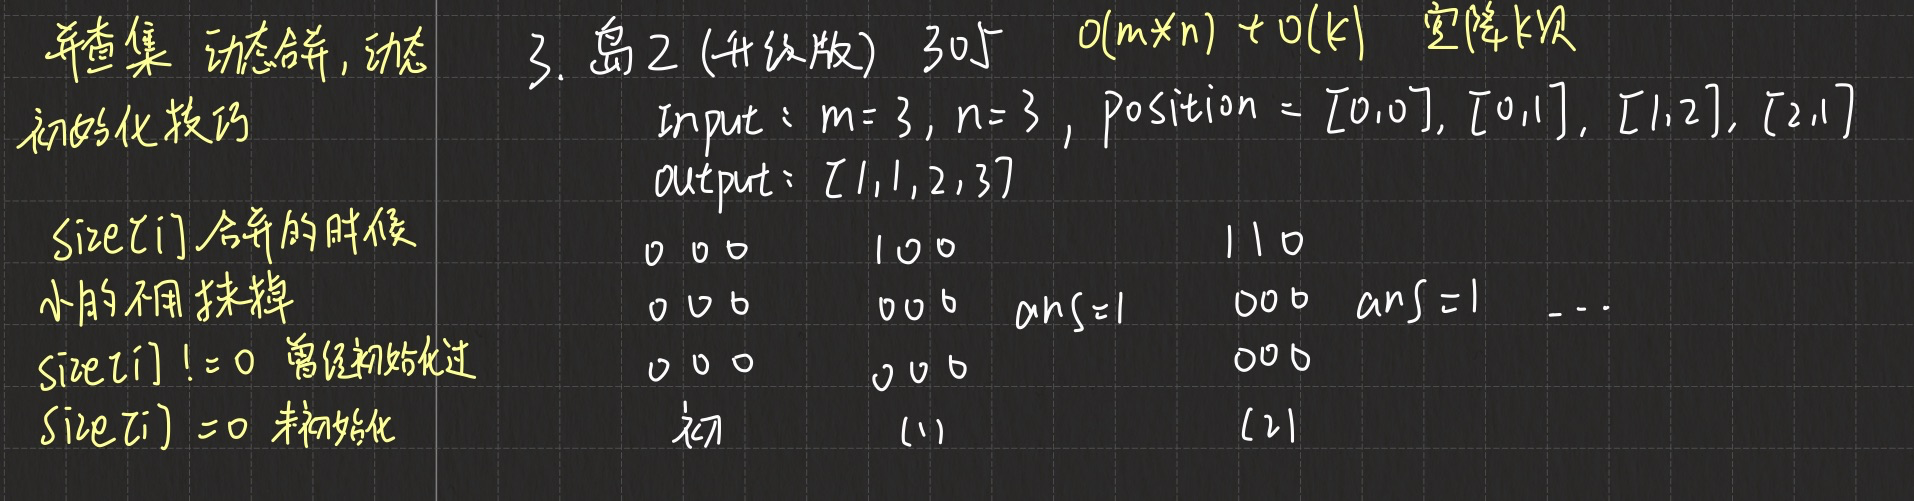 并查集 动态合并, 动态
初始化技巧
size[i] 合并的时候
小的不用抹掉
size[i] != 0 曾经初始化过
size[i] = 0 未初始化
3. 岛2 (升级版) 305 O(m*n) + O(k) 空降k次
Input: m=3, n=3, position = [0,0], [0,1], [1,2], [2,1]
output: [1,1,2,3]
0 0 0 1 0 0 1 1 0
0 0 0 0 0 0 ans=1 0 0 0 ans=1 ...
0 0 0 0 0 0 0 0 0
初 (1) (2)